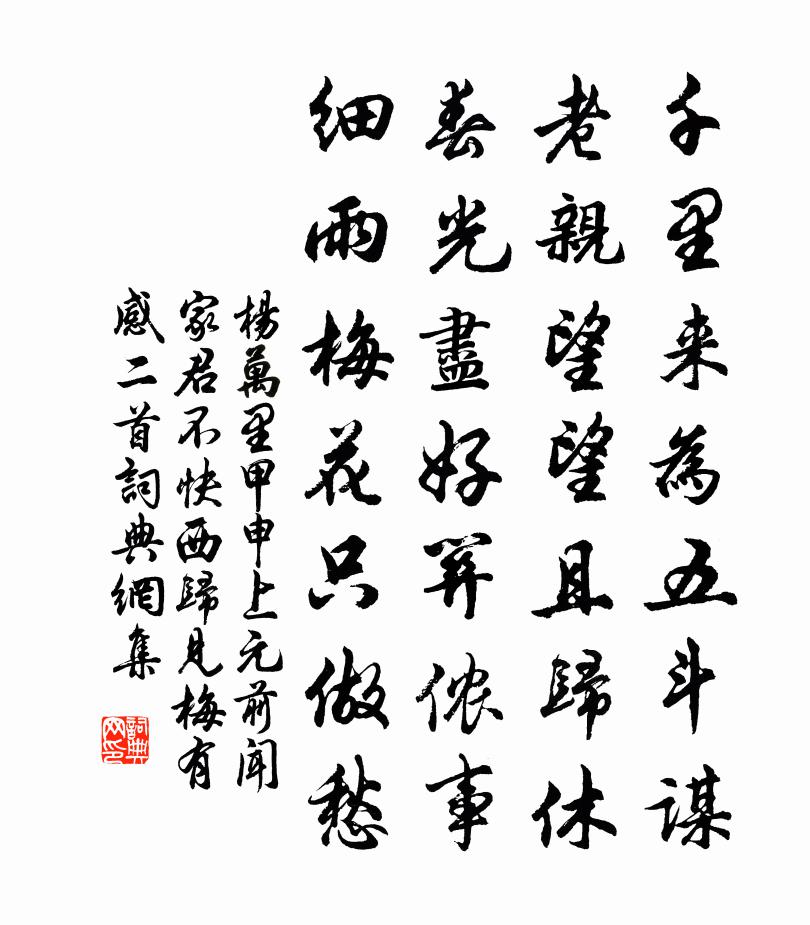 千里来為五斗謀
老親望望且歸休
春光盡好關儂事
細雨梅花只做愁
楊萬里甲申上元前聞
家君不快西歸見梅有
感二首詞典網集
詞典
网印